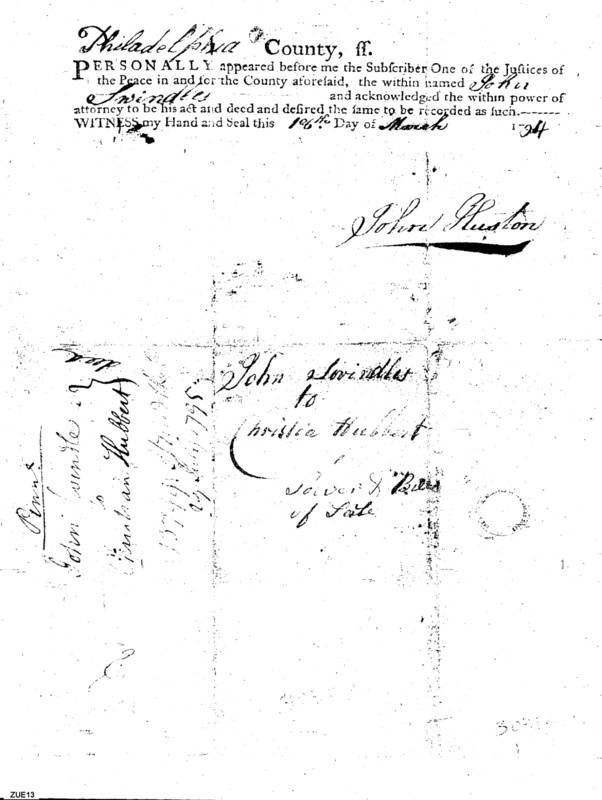 Philadelphia County, ſſ.
PERSONALLY appeared before me the Subſcriber One of the Juſtices of
the Peace in and for the County aforeſaid, the within named John
Swindles and acknowledged the within power of
attorney to be his act and deed and deſired the ſame to be recorded as ſuch.------
WITNESS my Hand and Seal this 18th Day of March 1794
John Huston
John Swindles
to
Christia Hubbert
Power & Bill
of Sale
Penna
John Swindle
to
Hubbert
July 1795
ZUE13